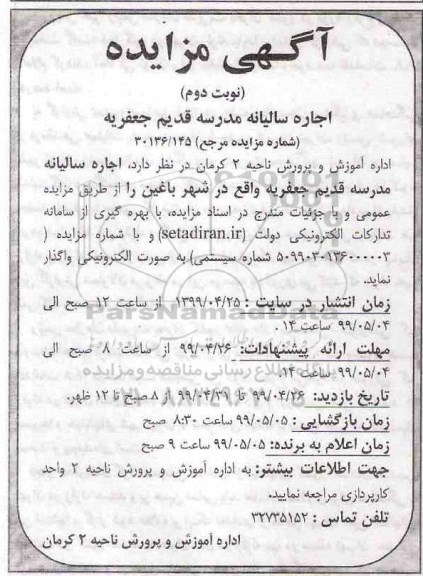 آگهی مزایده
(نوبت دوم)
اجاره سالیانه مدرسه قدیم جعفریه
(شماره مزایده مرجع) ۳۰۱۳۶/۱۴۵
اداره آموزش و پرورش ناحیه ۲ کرمان در نظر دارد، اجاره سالیانه
مدرسه قدیم جعفریه واقع در شهر باغین را از طریق مزایده
عمومی و با جزئیات مندرج در اسناد مزایده، با بهره گیری از سامانه
تدارکات الکترونیکی دولت (setadiran.ir) و با شماره مزایده (
۵۰۹۹۰۳۰۱۳۶۰۰۰۰۰۳ شماره سیستمی) به صورت الکترونیکی واگذار
نماید.
زمان انتشار در سایت : ۱۳۹۹/۰۴/۲۵ از ساعت ۱۲ صبح الی
۹۹/۰۵/۰۴ ساعت ۱۴.
مهلت ارائه پیشنهادات: ۹۹/۰۴/۲۶ از ساعت ۸ صبح الی
۹۹/۰۵/۰۴ ساعت ۱۴.
تاریخ بازدید: ۹۹/۰۴/۲۶ تا ۹۹/۰۴/۳۱ از ۸ صبح تا ۱۲ ظهر.
زمان بازگشایی : ۹۹/۰۵/۰۵ ساعت ۸:۳۰ صبح
زمان اعلام به برنده: ۹۹/۰۵/۰۵ ساعت ۹ صبح
جهت اطلاعات بیشتر: به اداره آموزش و پرورش ناحیه ۲ واحد
کارپردازی مراجعه نمایید.
تلفن تماس : ۳۲۷۳۵۱۵۲
اداره آموزش و پرورش ناحیه ۲ کرمان
ParsNamadData
پایگاه اطلاع رسانی مناقصه و مزایده